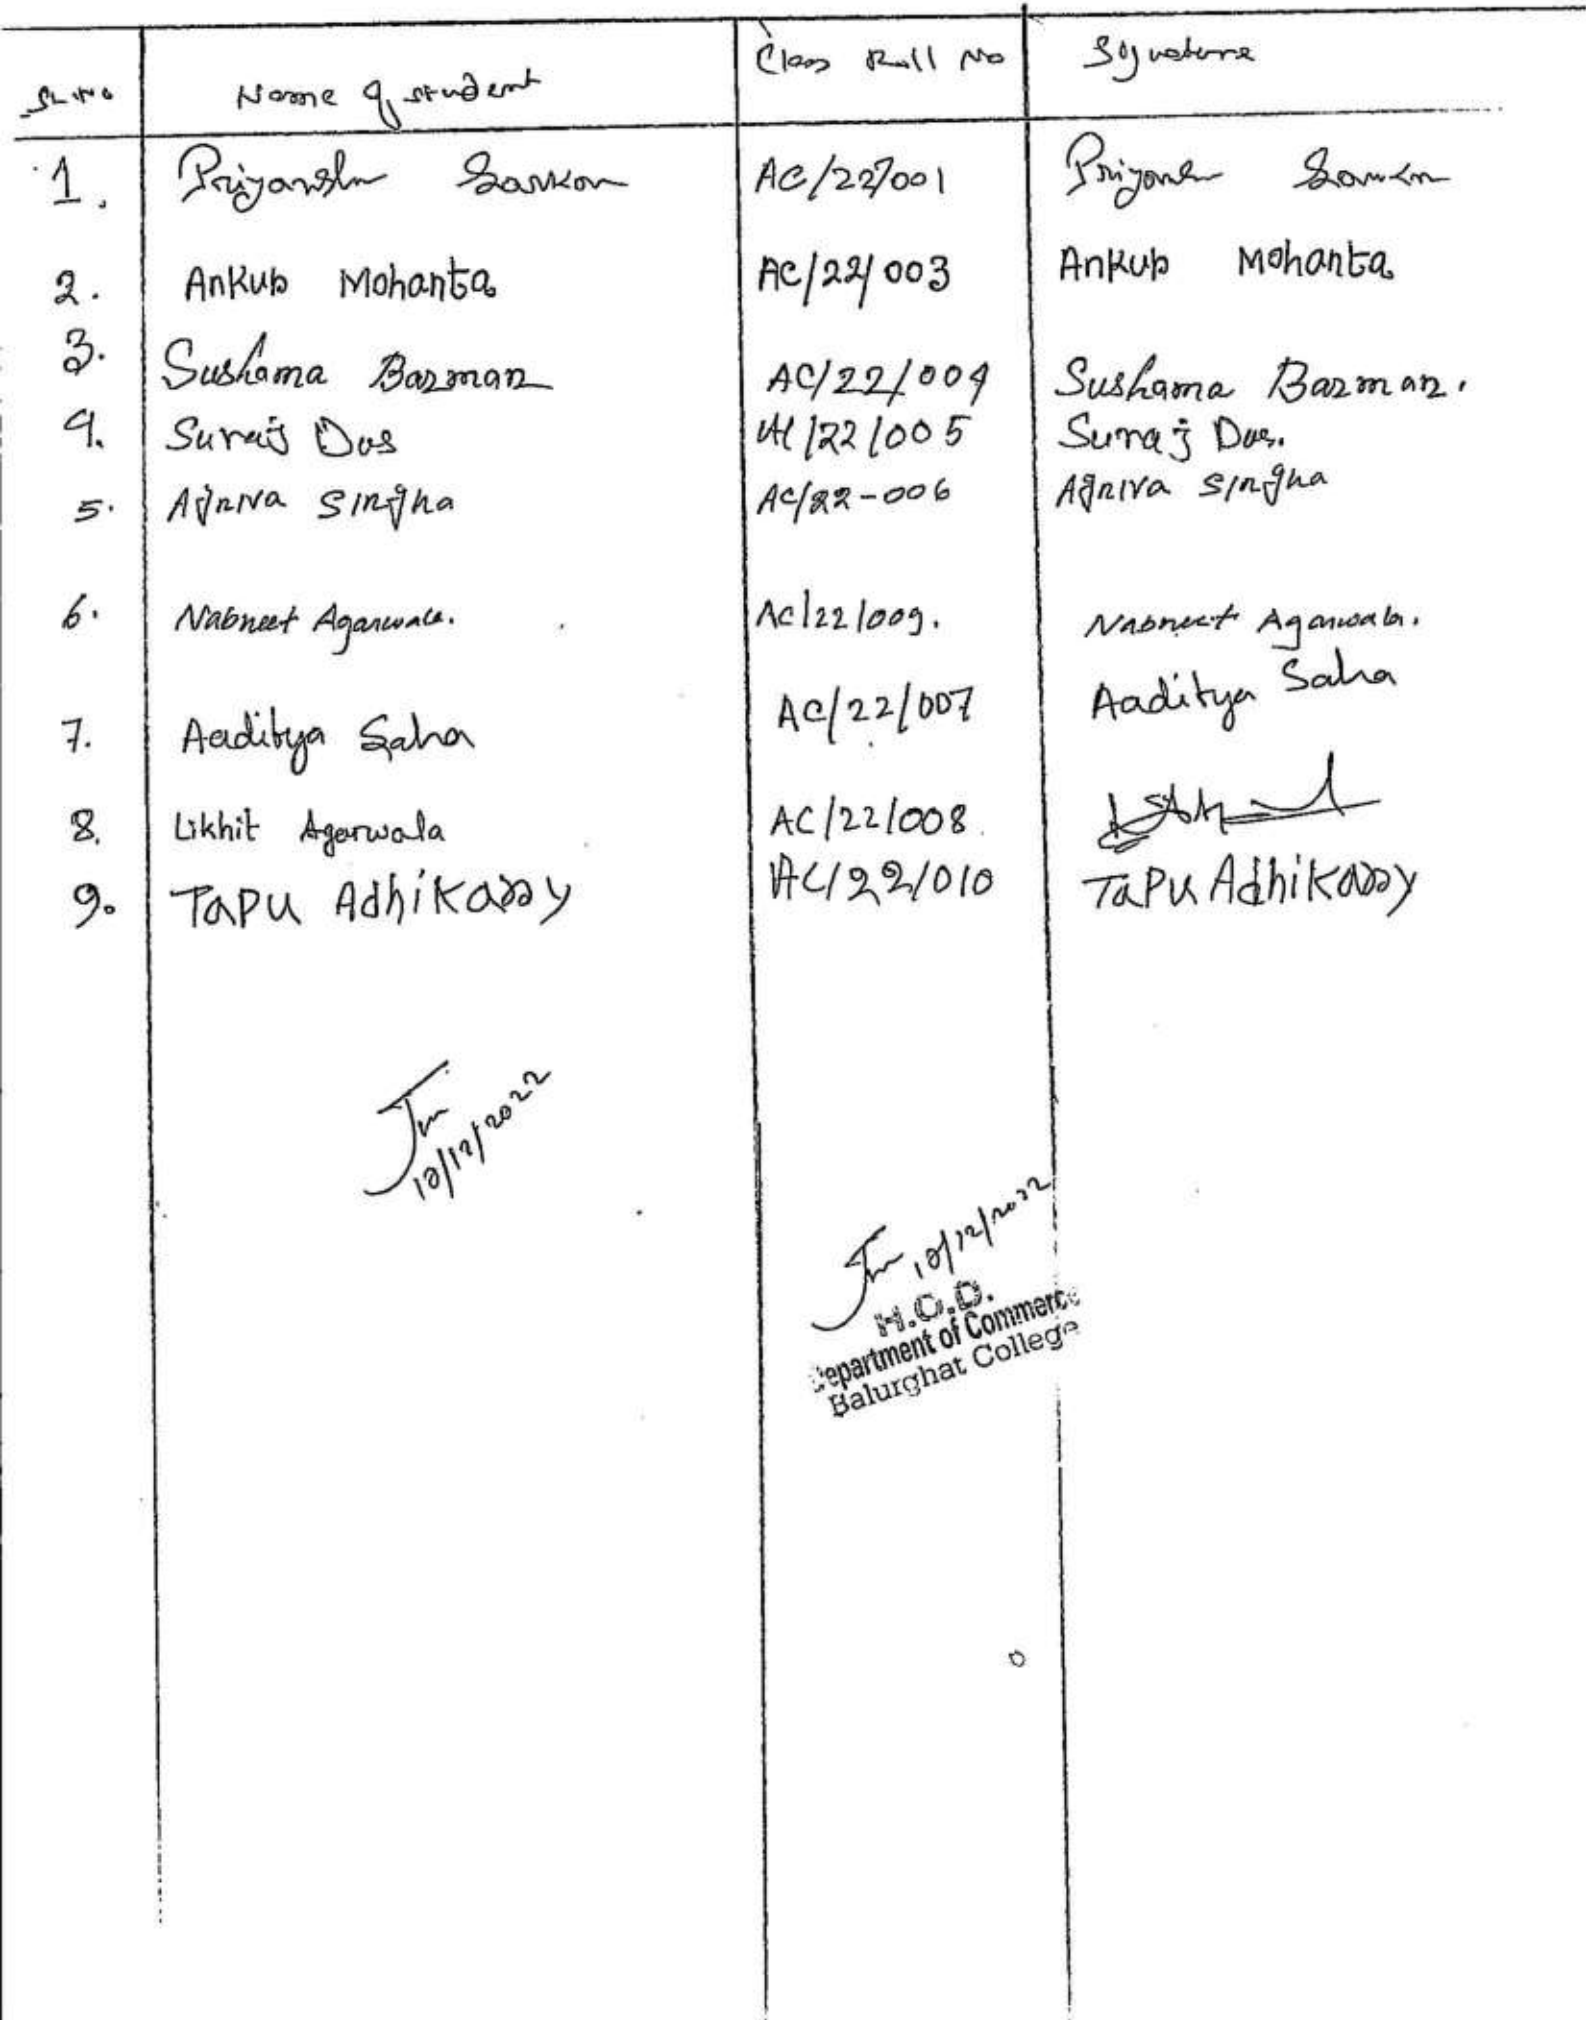 SL No Name of student Class Roll No Signature
1. Priyanshu Sarkar AC/22/001 Priyanshu Sarkar
2. Ankur Mohanta AC/22/003 Ankur Mohanta
3. Sushama Barman AC/22/004 Sushama Barman.
4. Suraj Das AC/22/005 Suraj Das.
5. Agniva Singha AC/22-006 Agniva Singha
6. Nabneet Agarwala. AC/22/009. Nabneet Agarwala.
7. Aaditya Saha AC/22/007 Aaditya Saha
8. Likhit Agarwala AC/22/008
9. Tapu Adhikary AC/22/010 Tapu Adhikary
10/12/2022
10/12/2022
H.O.D.
Department of Commerce
Balurghat College